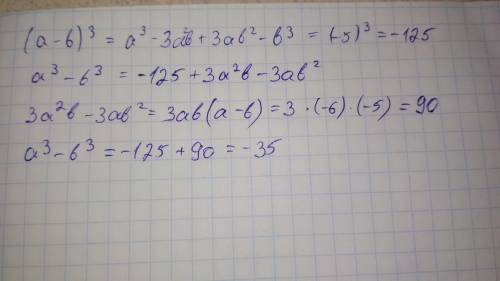 (a-b)³ = a³-3a²b+3ab²-b³ = (-5)³=-125
a³-b³ = -125+3a²b-3ab²
3a²b-3ab²=3ab(a-b)=3·(-6)·(-5)=90
a³-b³=-125+90=-35